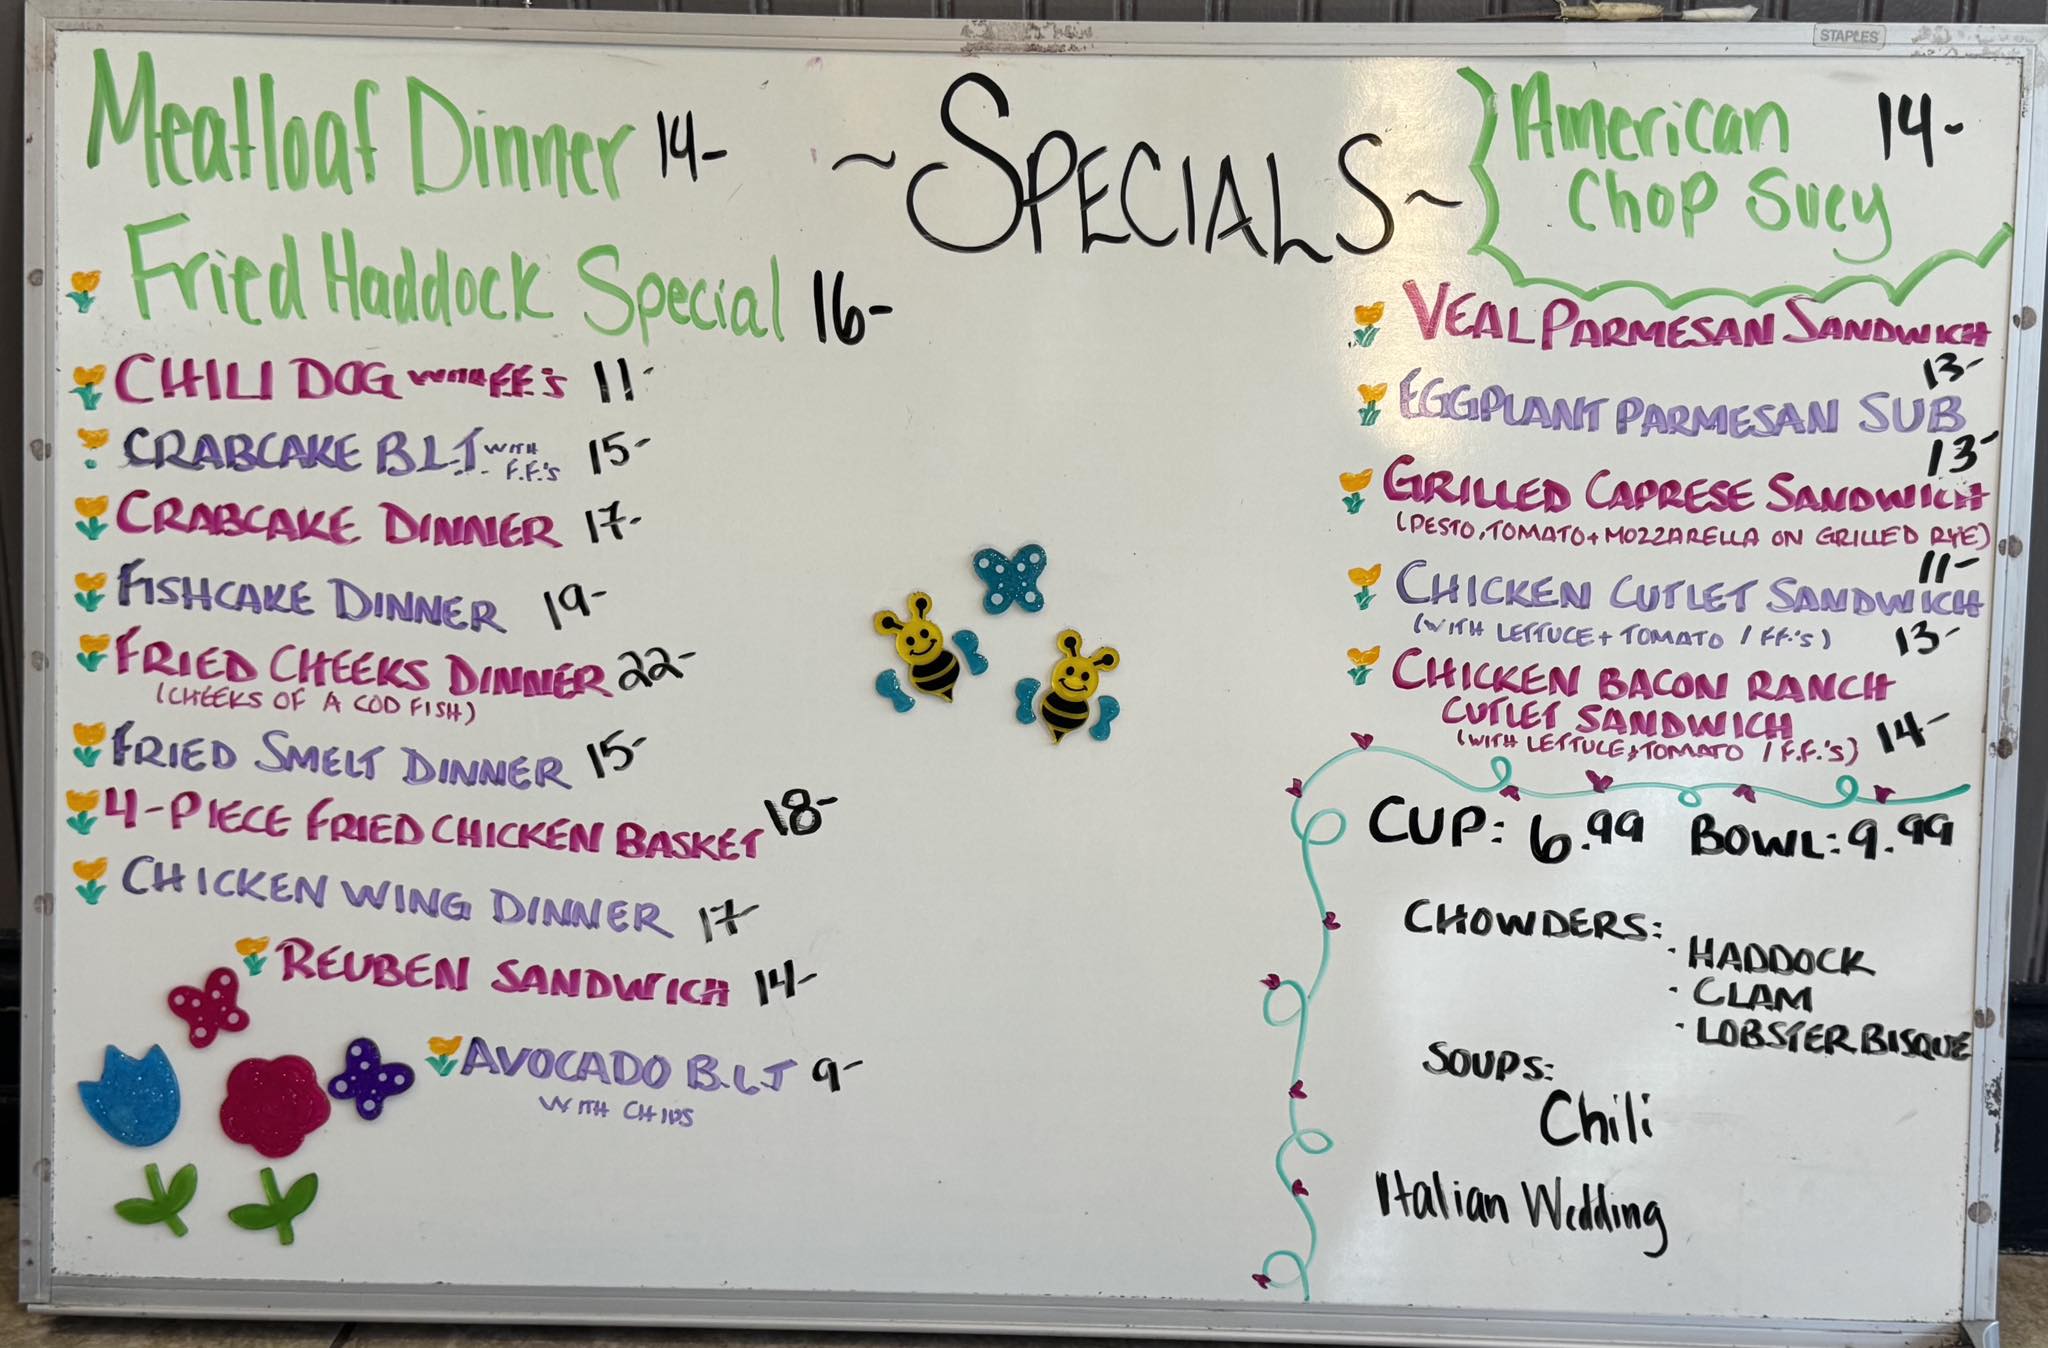 STAPLES
~SPECIALS~
Meatloaf Dinner 14-
Fried Haddock Special 16-
CHILI DOG WITH F.F.'s 11-
CRABCAKE B.L.T WITH F.F.'s 15-
CRABCAKE DINNER 17-
FISHCAKE DINNER 19-
FRIED CHEEKS DINNER 22-
(CHEEKS OF A COD FISH)
FRIED SMELT DINNER 15-
4-PIECE FRIED CHICKEN BASKET 18-
CHICKEN WING DINNER 17-
REUBEN SANDWICH 14-
AVOCADO B.L.T 9-
WITH CHIPS
American 14-
Chop Suey
VEAL PARMESAN SANDWICH
13-
EGGPLANT PARMESAN SUB
13-
GRILLED CAPRESE SANDWICH
(PESTO, TOMATO + MOZZARELLA ON GRILLED RYE)
11-
CHICKEN CUTLET SANDWICH
(WITH LETTUCE + TOMATO / FF.'s) 13-
CHICKEN BACON RANCH
CUTLET SANDWICH
(WITH LETTUCE + TOMATO / F.F.'s) 14-
CUP: 6.99 BOWL: 9.99
CHOWDERS:
· HADDOCK
· CLAM
· LOBSTER BISQUE
SOUPS:
Chili
Italian Wedding